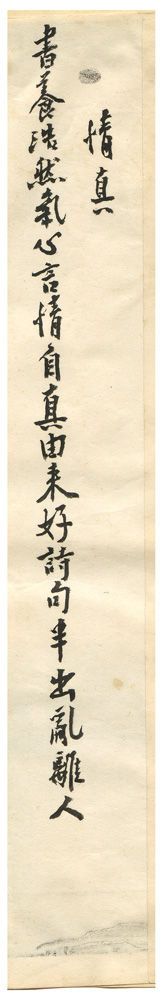 情真
書養浩然氣心言情自真由来好詩句半出亂離人